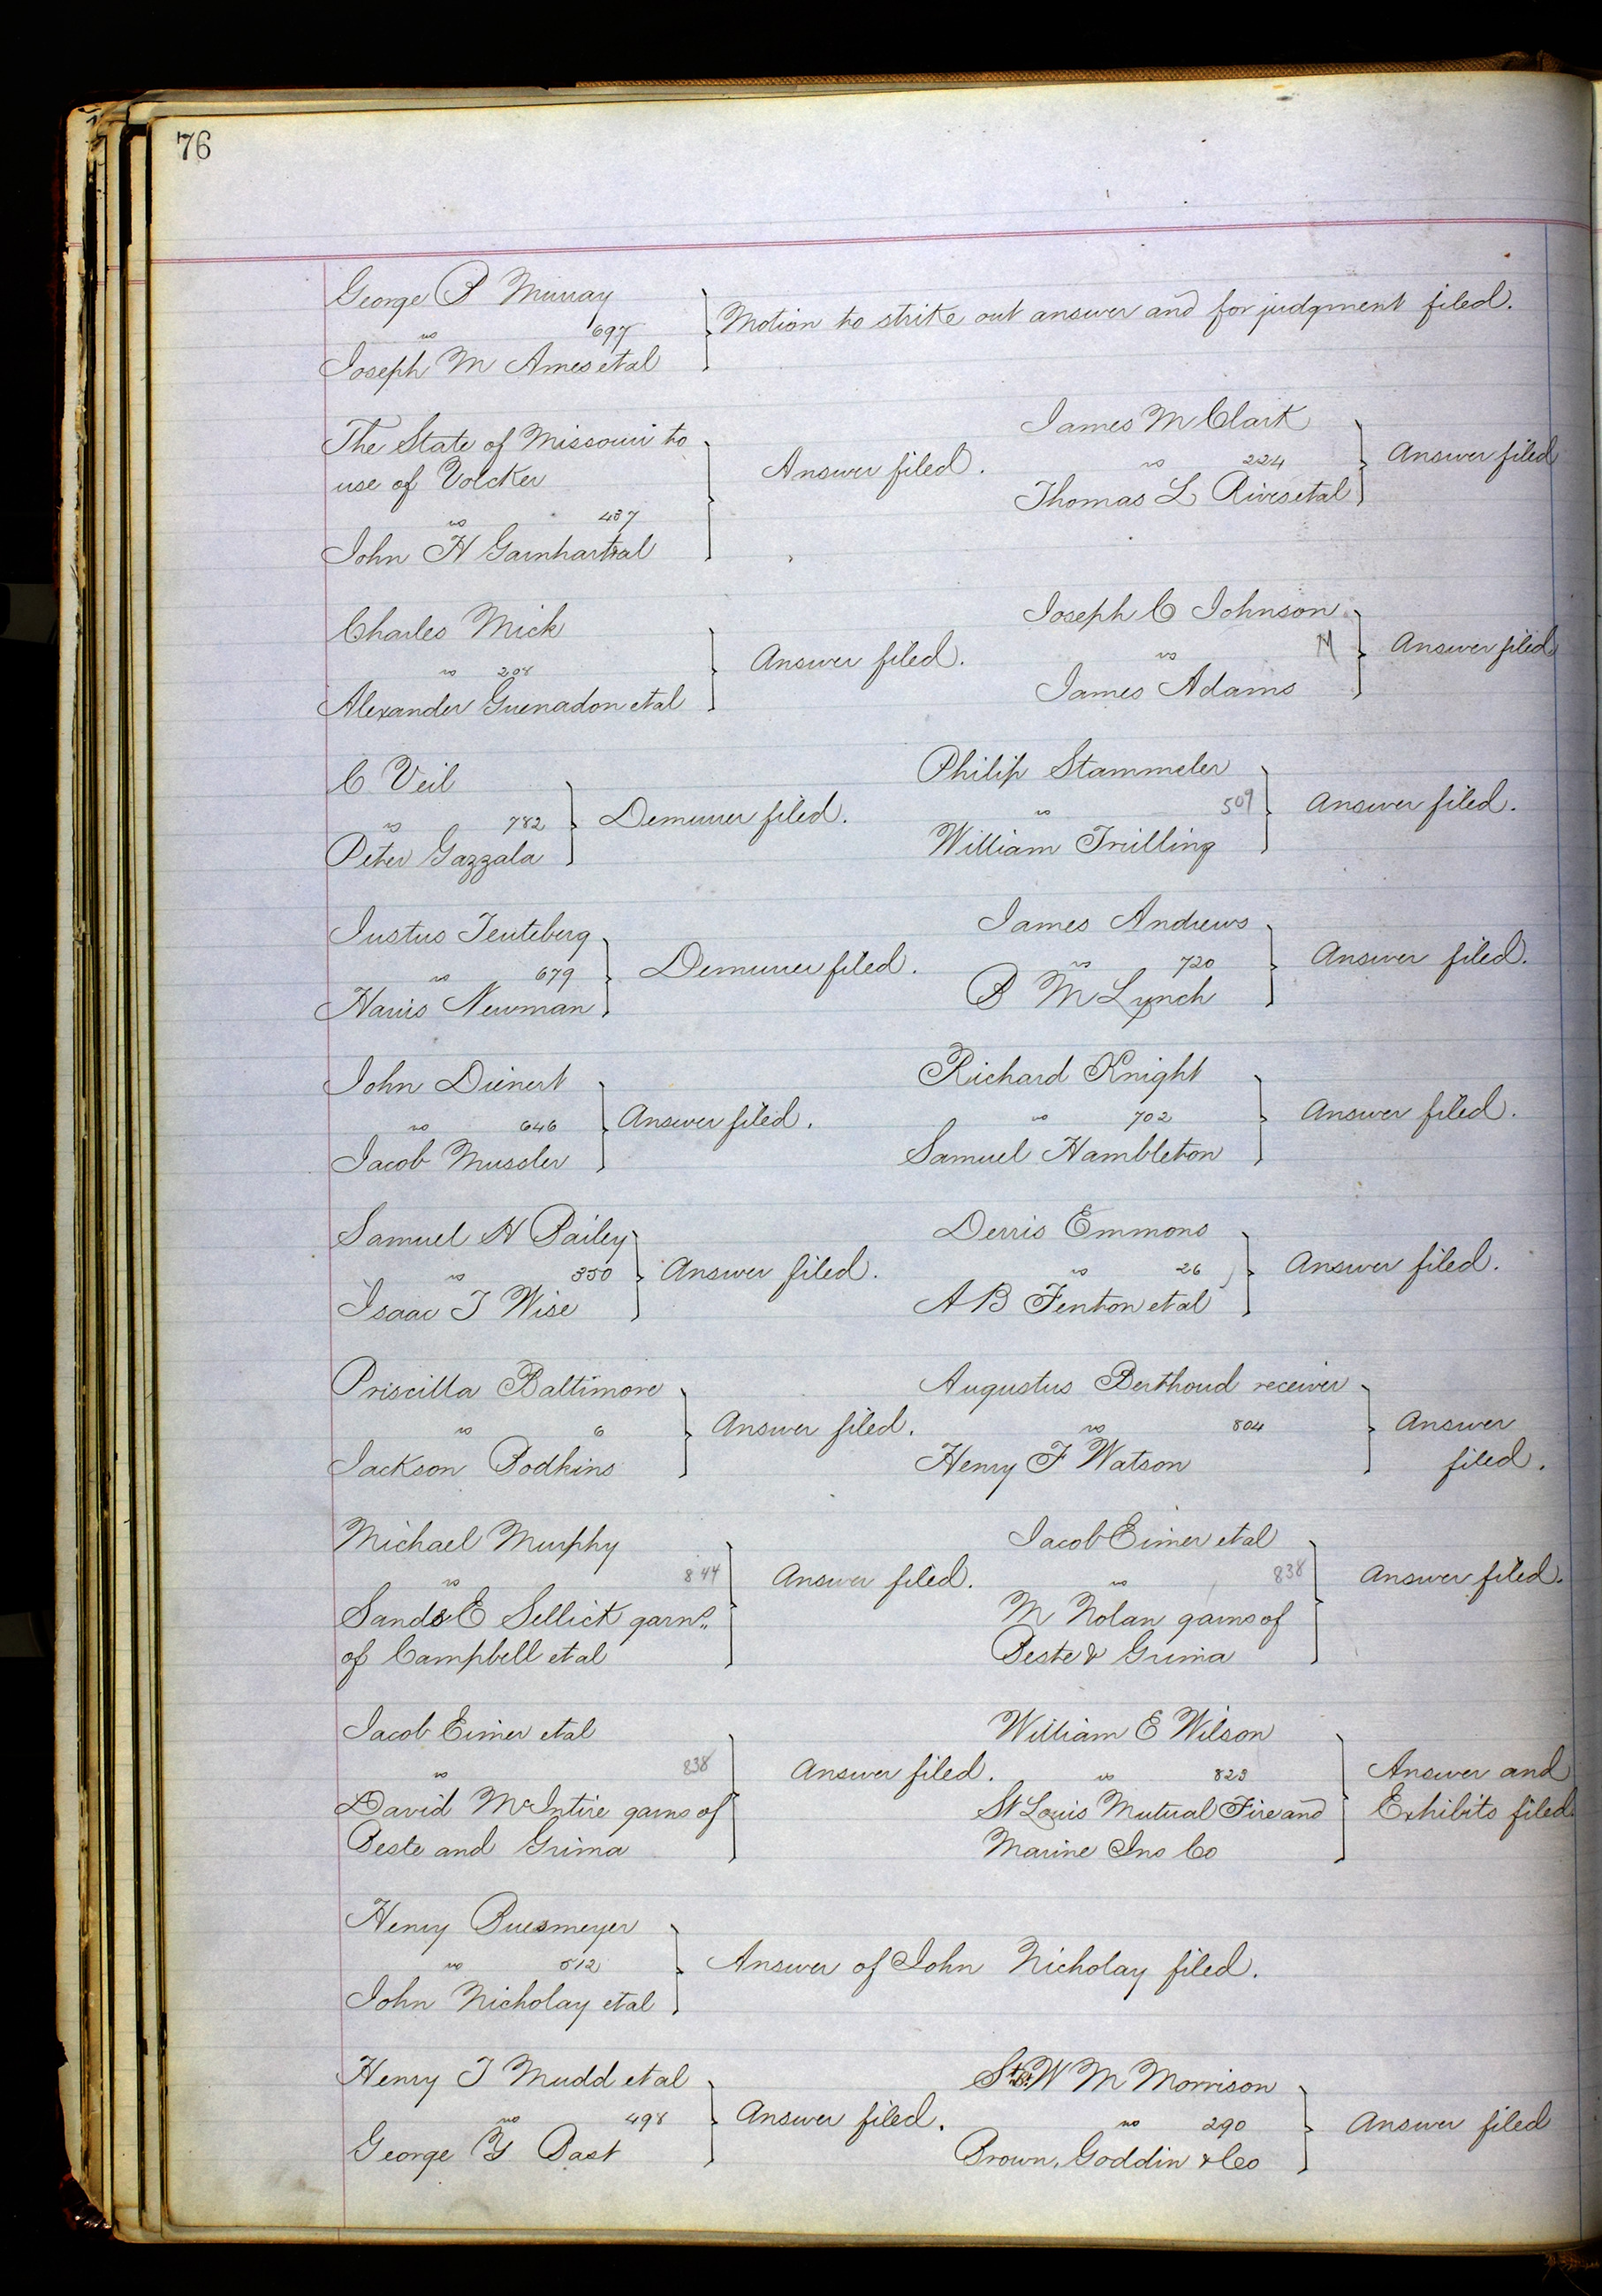 76
George P Murray
vs 697
Joseph M Ames et al
Motion to strike out answer and for judgment filed.
The State of Missouri to
use of Volcker
vs 487
John H Garnhart et al
Answer filed.
James M Clark
vs 224
Thomas L Rives et al
Answer filed
Charles Mick
vs 208
Alexander Guenadon et al
Answer filed.
Joseph C Johnson
vs
James Adams
Answer filed
C Veil
vs 782
Peter Gazzala
Demurrer filed.
Philip Stammeler
vs 509
William Trilling
Answer filed.
Justus Teuteberg
vs 679
Harris Newman
Demurrer filed.
James Andrews
vs 720
B M Lynch
Answer filed.
John Dienert
vs 646
Jacob Mussler
Answer filed.
Richard Knight
vs 702
Samuel Hambleton
Answer filed.
Samuel H Bailey
vs 350
Isaac T Wise
Answer filed.
Derris Emmons
vs 26
A B Fenton et al
Answer filed.
Priscilla Baltimore
vs 6
Jackson Bodkins
Answer filed.
Augustus Berthoud receiver
vs 804
Henry F Watson
Answer
filed.
Michael Murphy
vs 844
Sands E Sellick garn.
of Campbell et al
Answer filed.
Jacob Eimer et al
vs 838
M Nolan garns of
Beste & Grima
Answer filed.
Jacob Eimer et al
vs 838
David McIntire garns of
Beste and Grima
Answer filed.
William E Wilson
vs 823
St Louis Mutual Fire and
Marine Ins Co
Answer and
Exhibits filed.
Henry Buesmeyer
vs 512
John Nicholay et al
Answer of John Nicholay filed.
Henry T Mudd et al
vs 498
George Y Bast
Answer filed.
W M Morrison
vs 290
Brown, Goddin & Co
Answer filed